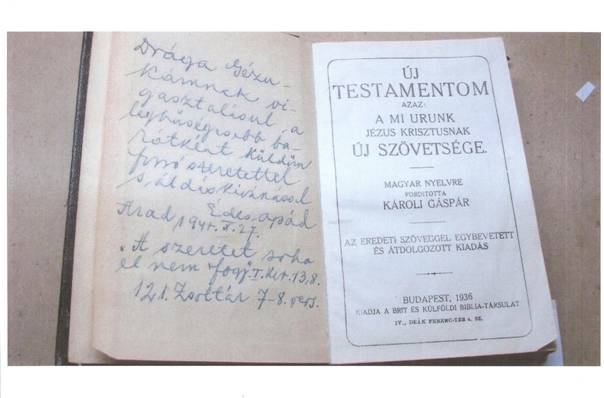 Drága Gézu-
kámnak vi-
gasztalásul, a
leghűségesebb ba-
rátként küldöm
forró szeretettel
s áldáskívánással
Édes apád
Arad 1941. X. 27.
"A szeretet soha
el nem fogy. I. Kor. 13,8.
121. Zsoltár 7-8. vers.
ÚJ
TESTAMENTOM
AZAZ:
A MI URUNK
JÉZUS KRISZTUSNAK
ÚJ SZÖVETSÉGE.
MAGYAR NYELVRE
FORDÍTOTTA
KÁROLI GÁSPÁR
AZ EREDETI SZÖVEGGEL EGYBEVETETT
ÉS ÁTDOLGOZOTT KIADÁS
BUDAPEST, 1936
KIADJA A BRIT ÉS KÜLFÖLDI BIBLIA-TÁRSULAT
IV., DEÁK FERENC-TÉR 4. SZ.